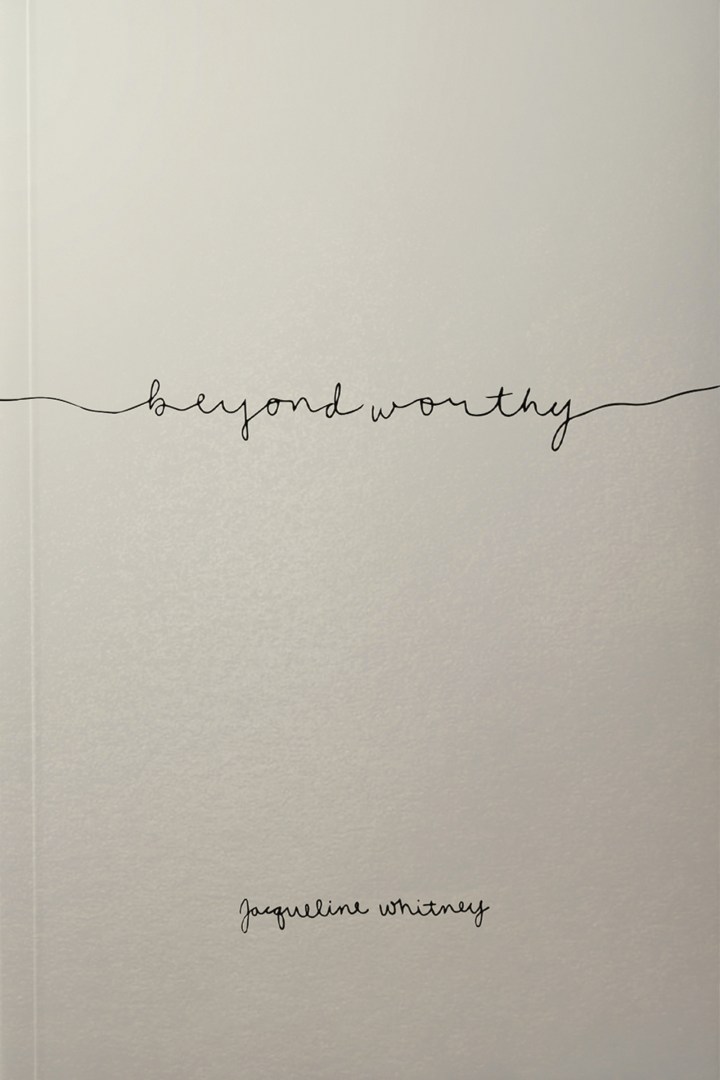 beyond worthy
Jacqueline Whitney